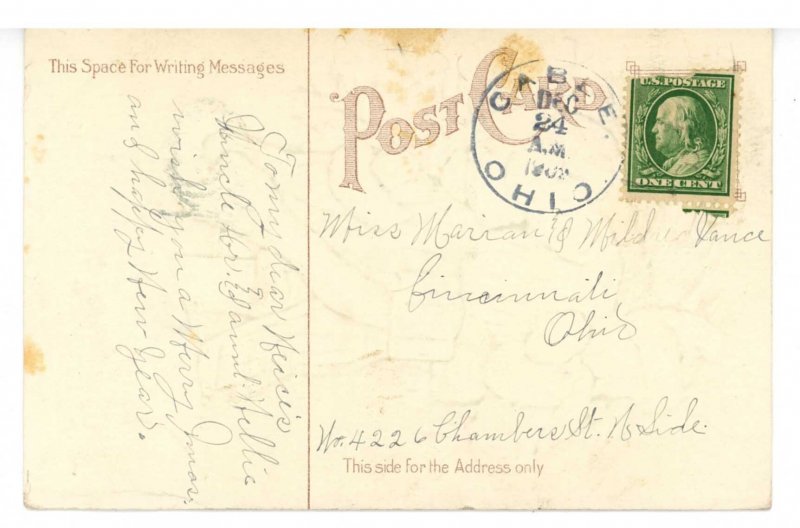 This Space For Writing Messages
POST CARD
GABLE.
DEC
24
A.M.
OHIO
U.S. POSTAGE
ONE CENT
To my dear Neices
Uncle Wr. & aunt. Nellie
wish you a Merry Xmas.
and happy New Year.
Miss Marian & Mildred Vance
Cincinnati,
Ohio
No. 4226 Chambers St. N Side.
This side for the Address only